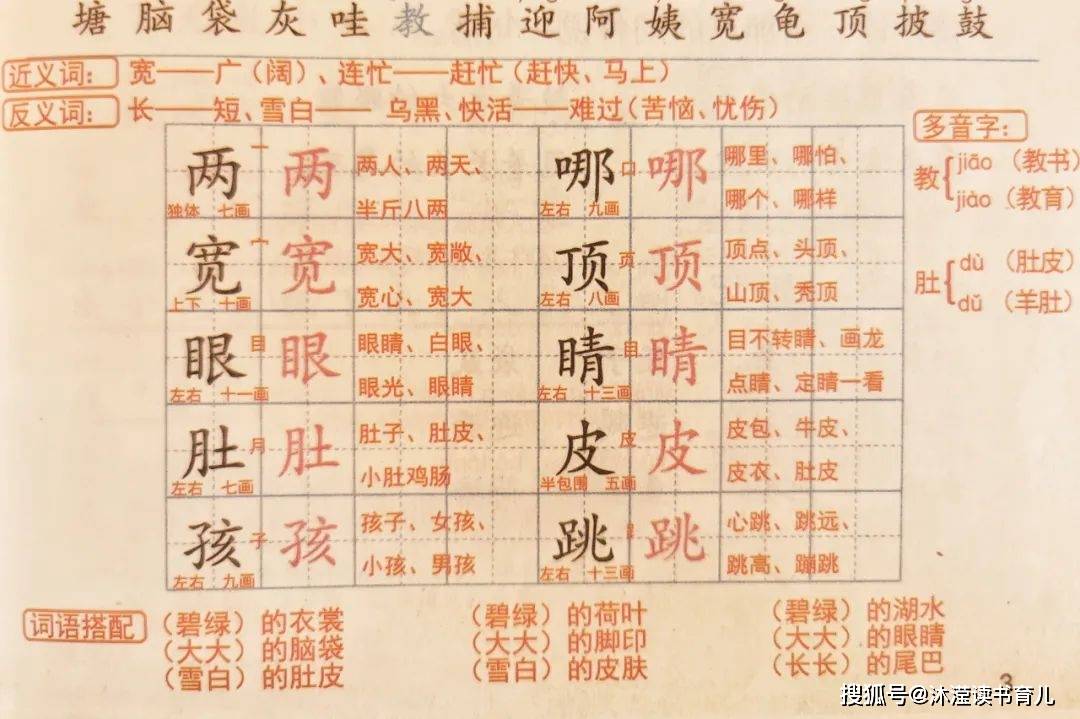 塘 脑 袋 灰 哇 教 捕 迎 阿 姨 宽 龟 顶 披 鼓
近义词： 宽——广（阔）、连忙——赶忙（赶快、马上）
反义词： 长——短、雪白——乌黑、快活——难过（苦恼、忧伤）
多音字：
教 jiāo （教书）
jiào （教育）
肚 dù （肚皮）
dǔ （羊肚）
两 一 两 两人、两天、
独体 七画 半斤八两
哪 口 哪 哪里、哪怕、
左右 九画 哪个、哪样
宽 宀 宽 宽大、宽敞、
上下 十画 宽心、宽大
顶 页 顶 顶点、头顶、
左右 八画 山顶、秃顶
眼 目 眼 眼睛、白眼、
左右 十一画 眼光、眼睛
睛 目 睛 目不转睛、画龙
左右 十三画 点睛、定睛一看
肚 月 肚 肚子、肚皮、
左右 七画 小肚鸡肠
皮 皮 皮 皮包、牛皮、
半包围 五画 皮衣、肚皮
孩 子 孩 孩子、女孩、
左右 九画 小孩、男孩
跳 跳 心跳、跳远、
左右 十三画 跳高、蹦跳
词语搭配 （碧绿）的衣裳 （碧绿）的荷叶 （碧绿）的湖水
（大大）的脑袋 （大大）的脚印 （大大）的眼睛
（雪白）的肚皮 （雪白）的皮肤 （长长）的尾巴
3
搜狐号@沐滢读书育儿